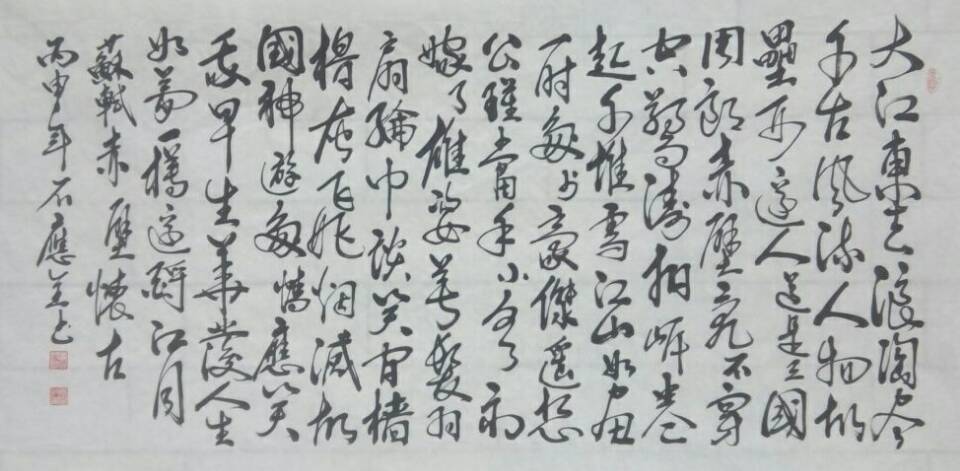 大江東去浪淘盡
千古風流人物故
壘西邊人道是三國
周郎赤壁亂石穿
空驚濤拍岸卷
起千堆雪江山如畫
一時多少豪傑遙想
公瑾當年小喬初
嫁了雄姿英發羽
扇綸巾談笑間檣
櫓灰飛烟滅故
國神遊多情應笑
我早生華發人生
如夢一樽還酹江月
蘇軾赤壁懷古
丙申年石應书